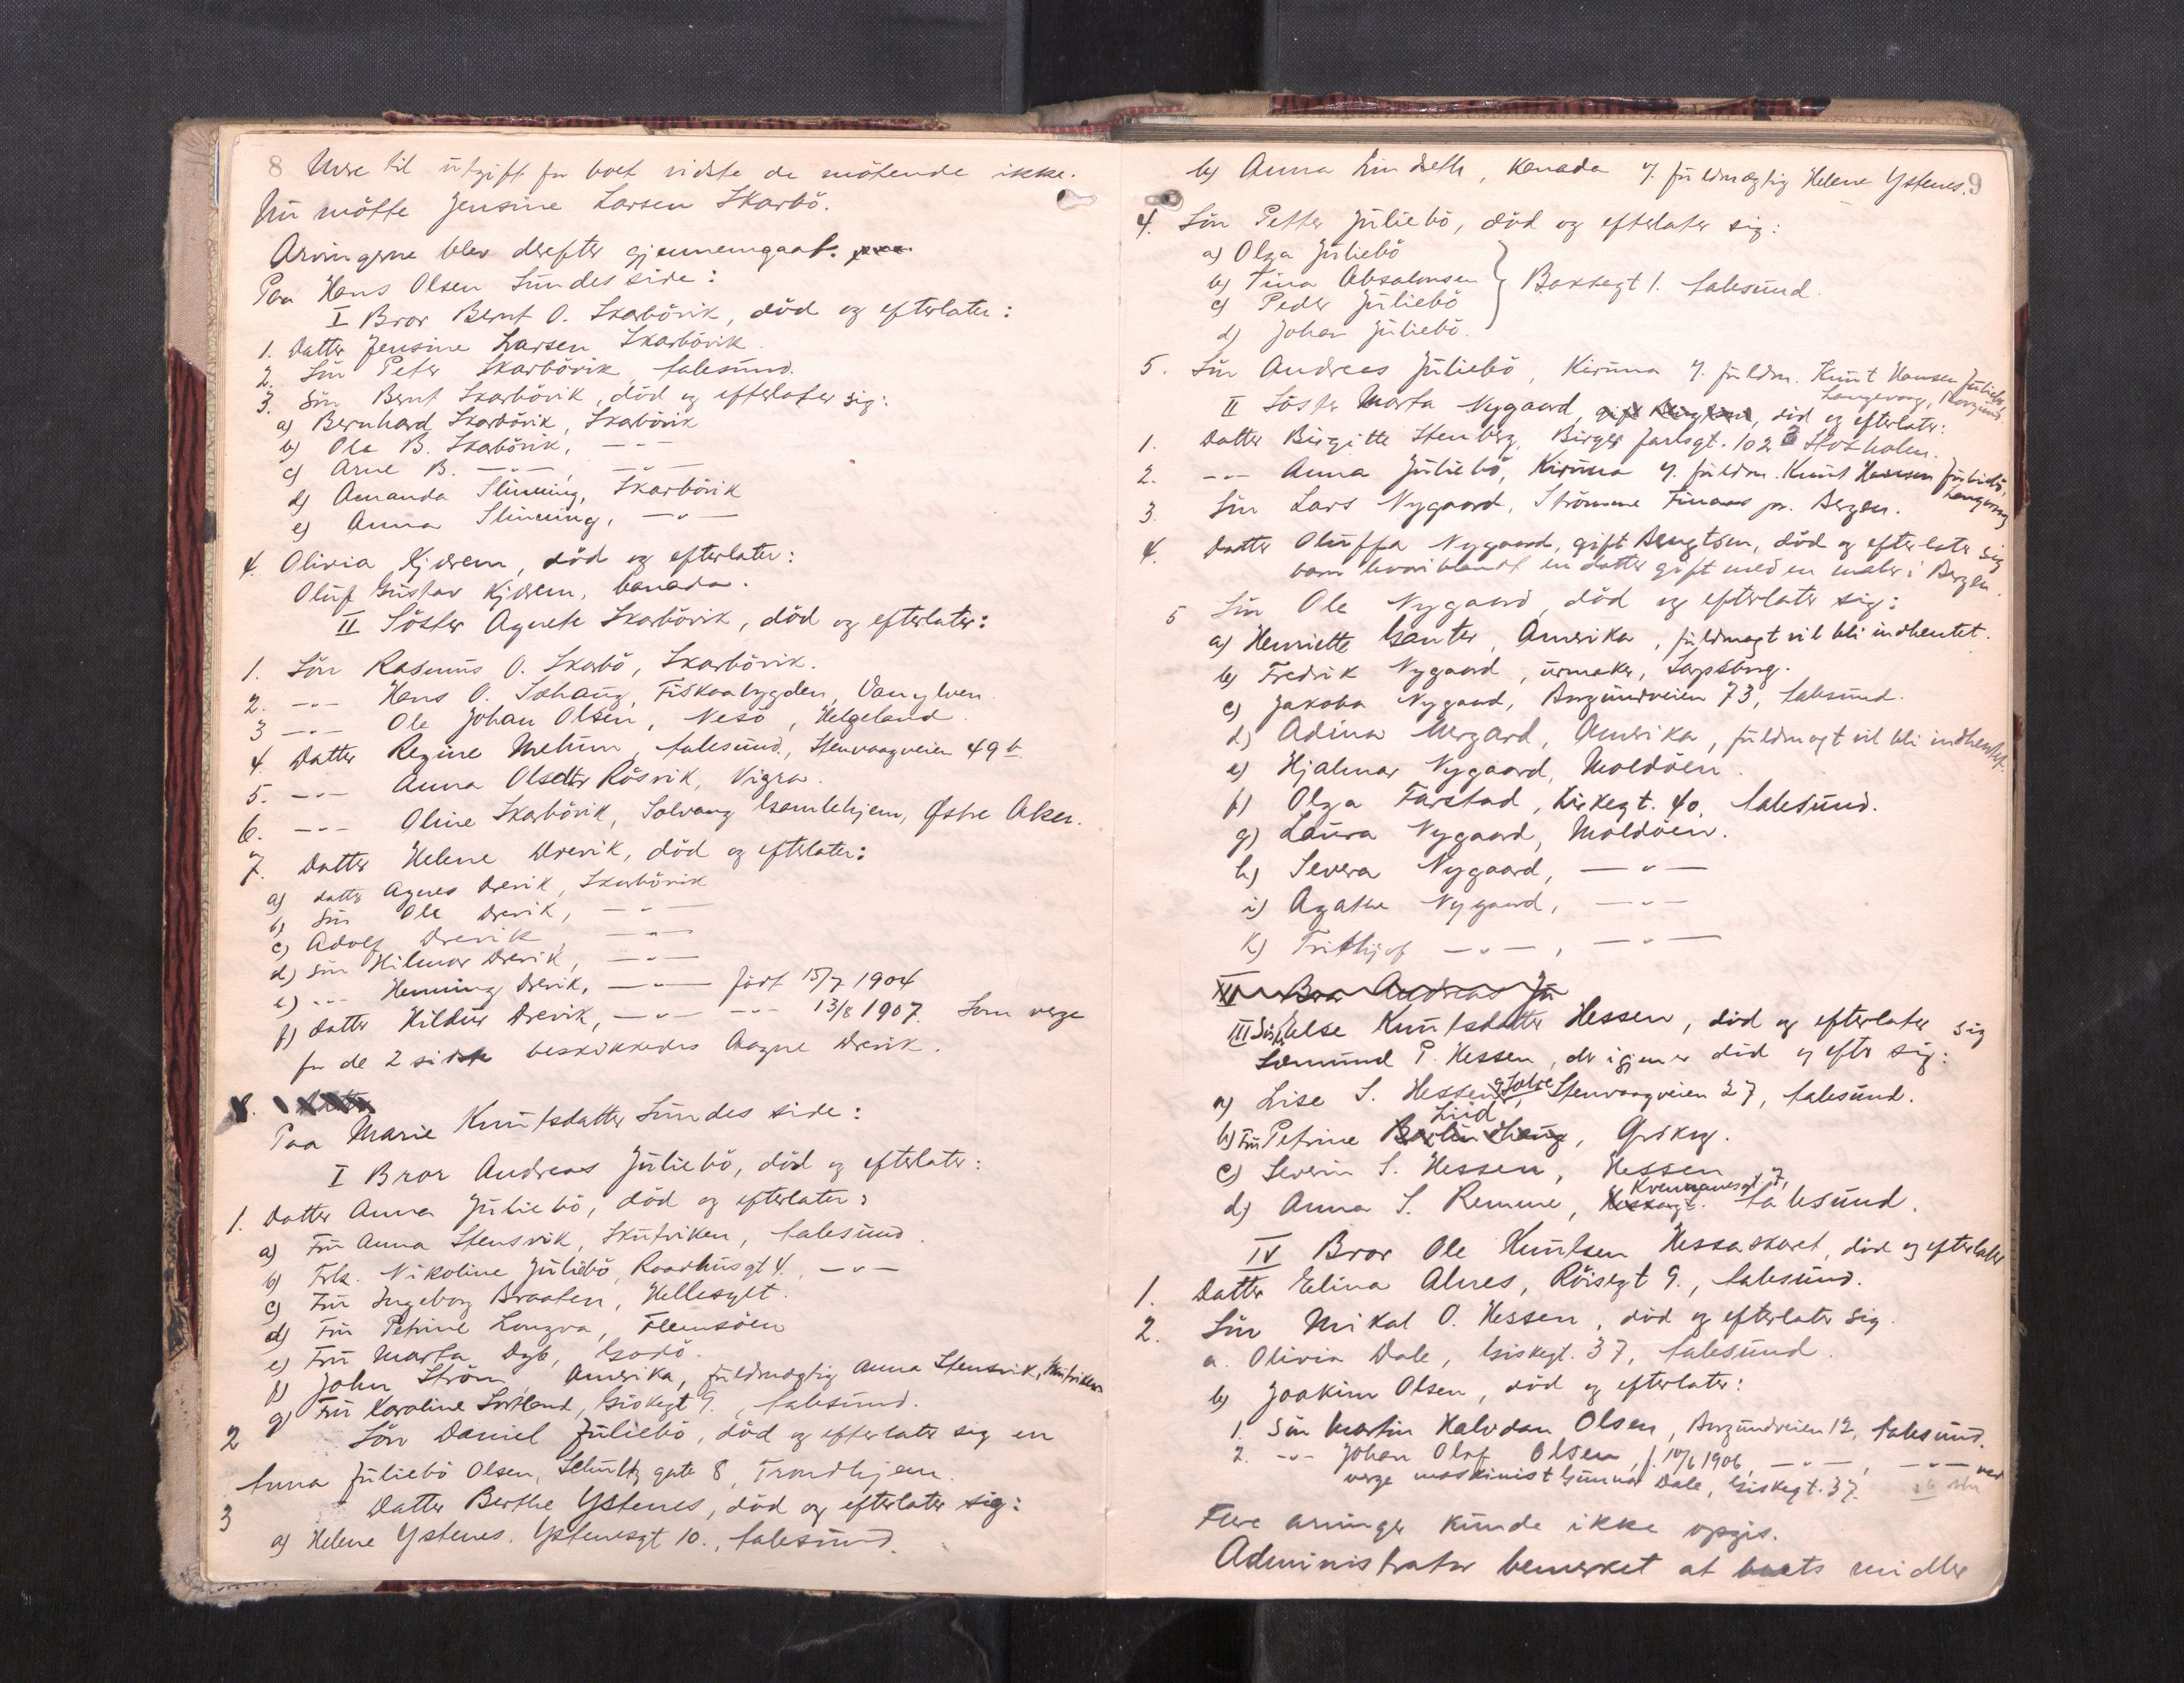 8 Mere til utgift for boet vidste de mötende ikke.
Nu mötte Jensine Larsen Skarbö.
Arvingerne blev derefter gjennemgaat.
Paa Hans Olsen Sundes side:
I Bror Bernt O. Skarbövik, död og efterlater:
1. Datter Jensine Larsen Skarbövik.
2. Sön Peter Skarbövik, Aalesund.
3. Sön Bernt Skarbövik, död og efterlater sig:
a) Bernhard Skarbövik, Skarbövik
b) Ole B. Skarbövik, -"-
c) Arne B. -"-, -"-
d) Amanda Slinning, Skarbövik
e) Anna Slinning, -"-
4. Olivia Kjerem, död og efterlater:
Oluf Gustav Kjerem, Canada.
II Söster Agnete Skarbövik, död og efterlater:
1. Sön Rasmus O. Skarbö, Skarbövik.
2. -"- Hans O. Sohaug, Fiskaabygden, Vanylven.
3 -"- Ole Johan Olsen, Nesö, Helgeland.
4. Datter Regine Melum, Aalesund, Stenvaagveien 49 b.
5. -"- Anna Olsdtr Rösvik, Vigra.
6. -"- Oline Skarbövik, Solvang Gamlehjem, Østre Aker.
7. Datter Helene Drevik, död og efterlater:
a) datter Agnes Drevik, Skarbövik
b) Sön Ole Drevik, -"-
c) Adolf Drevik, -"-
d) Sön Hilmar Drevik, -"-
e) -"- Henning Drevik, -"- födt 15/7 1904
f) Datter Hildur Drevik, -"- -"- 13/8 1907. Som verge
for de 2 sidste beskikkedes Magne Drevik.
8. Datter
Paa Marie Knutsdatter Sundes side:
I Bror Andreas Juliebö, död og efterlater:
1. Datter Anna Juliebö, död og efterlater:
a) Fru Anna Stensvik, Skutviken, Aalesund.
b) Frk. Nikoline Juliebö, Raadhusgt 4. -"-
c) Fru Ingeborg Braaten, Hellesylt.
d) Fru Petrine Longva, Flemsöen
e) Fru Marta Dyb, Godö.
f) John Ström, Amerika, fuldmægtig Anna Stensvik, Skutviken
g) Fru Karoline Sortland, Giskegt 9., Aalesund.
2 Sön Daniel Juliebö, död og efterlater sig en
Anna Juliebö Olsen, Schultz gate 8, Trondhjem.
3 Datter Berthe Ystenes, död og efterlater sig:
a) Helene Ystenes. Ystenesgt 10., Aalesund.
b) Anna Lindseth, Kanada v. fuldmægtig Helene Ystenes. 9
4. Sön Petter Juliebö, död og efterlater sig:
a) Olga Juliebö
b) Tina Absalonsen } Baksegt 1. Aalesund.
c) Peder Juliebö
d) Johan Juliebö.
5. Sön Andreas Juliebö, Kiruna v. fuldm. Knut Hansen Juliebö,
Langevaag, Borgund.
II Söster Marta Nygaard, død og efterlater:
1. Datter Birgitte Stenberg, Birger Jarlsgt. 102 Stokholm.
2. -"- Anna Juliebö, Kiruna v. fuldm. Knut Hansen Juliebö,
Langevaag
3. Sön Lars Nygaard, Strömme Finaas pr. Bergen.
4. Datter Oluffa Nygaard, gift Bengtsen, död og efterlater sig
barn hvoriblandt en datter gift med en maler i Bergen.
5 Sön Ole Nygaard, död og efterlater sig:
a) Henriette Ganter, Amerika, fuldmagt vil bli indhentet.
b) Fredrik Nygaard, urmaker, Sarpsborg.
c) Jakoba Nygaard, Borgundveien 73, Aalesund.
d) Adina Mergard, Amerika, fuldmagt vil bli indhentet.
e) Hjalmar Nygaard, Moldöen.
f) Olga Farstad, Kirkegt. 40, Aalesund.
g) Laura Nygaard, Moldöen.
h) Severa Nygaard, -"-
i) Agathe Nygaard, -"-
k) Frithjof -"-, -"-
III Bror Andreas Ju
III Söst. Else Knutsdatter Hessen, död og efterlater sig
Sæmund P. Hessen, der igjen er död og efterl. sig:
a) Lise S. Hessen g. Solve, Stenvaagveien 27, Aalesund.
Liid
b) Fru Petrine, Gurskøy.
c) Severin S. Hessen, Hessen
Kvennanesgt 7,
d) Anna S. Remme, Aalesund.
IV Bror Ole Knutsen Hessaskaret, död og efterlater
1. Datter Elina Alnes, Röisegt 9., Aalesund.
2. Sön Mikal O. Hessen, död og efterlater sig.
a. Olivia Dale, Giskegt. 37, Aalesund.
b) Joakim Olsen, död og efterlater:
1. Sön Martin Halvdan Olsen, Borgundveien 12, Aalesund.
2. -"- Johan Olaf Olsen, f. 10/6 1906, -"-, -"- ved
verge maskinist Gunnar Dale, Giskegt. 37.
Flere arvinger kunde ikke opgis.
Administrator bemerket at boets midler